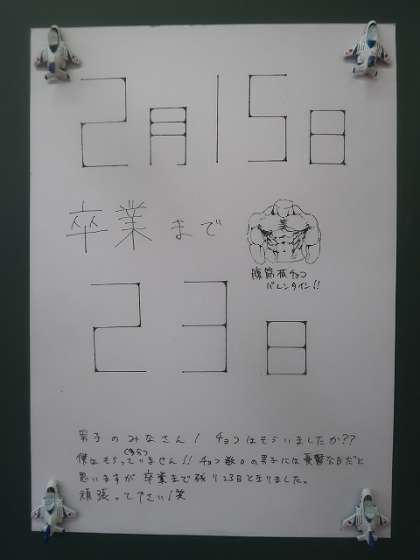 2月15日
卒業まで
腹筋板チョコ
バレンタイン!!
23日
男子のみなさん! チョコはもらいましたか??
僕はもらっていません!! チョコ数0の男子には憂鬱な日だと
思いますが 卒業まで残り23日となりました。
頑張って下さい!笑